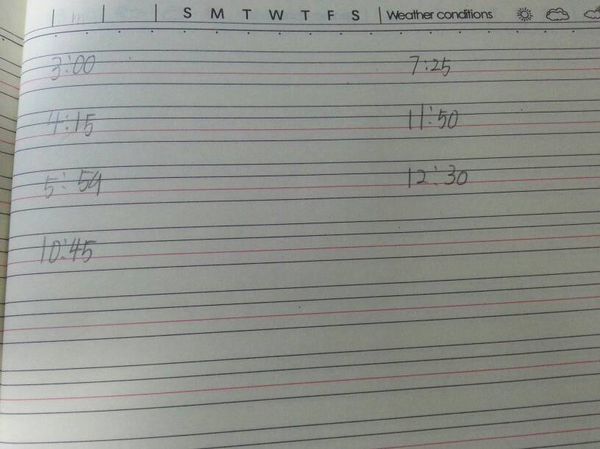 S M T W T F S Weather conditions
3:00 7:25
4:15 11:50
5:54 12:30
10:45